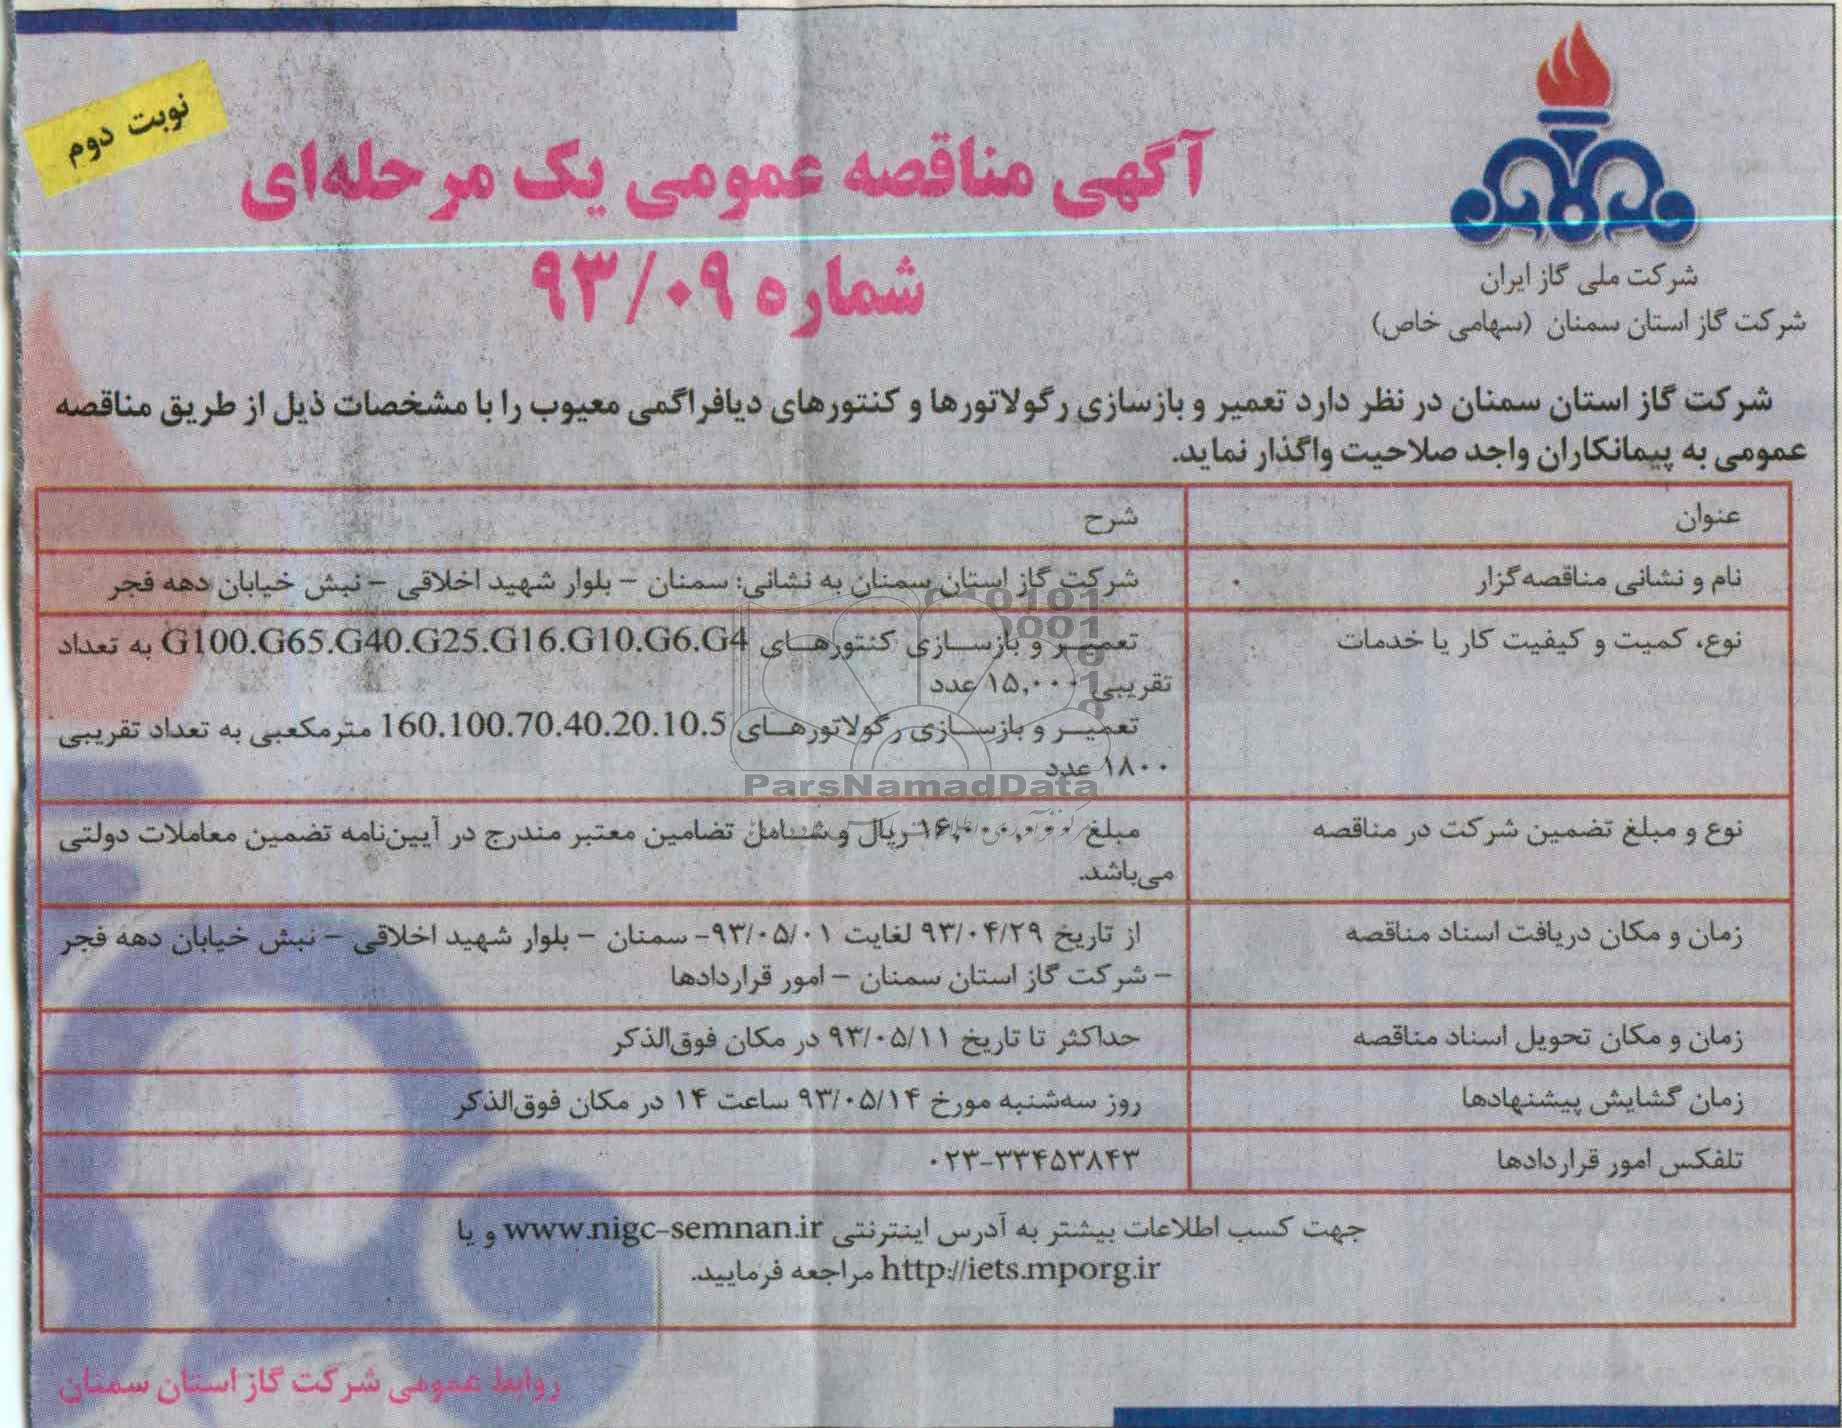 نوبت دوم
آگهی مناقصه عمومی یک مرحله‌ای
شماره ۹۳/۰۹
شرکت ملی گاز ایران
شرکت گاز استان سمنان (سهامی خاص)
شرکت گاز استان سمنان در نظر دارد تعمیر و بازسازی رگولاتورها و کنتورهای دیافراگمی معیوب را با مشخصات ذیل از طریق مناقصه
عمومی به پیمانکاران واجد صلاحیت واگذار نماید.
عنوان	شرح
نام و نشانی مناقصه‌گزار	شرکت گاز استان سمنان به نشانی: سمنان – بلوار شهید اخلاقی – نبش خیابان دهه فجر
نوع، کمیت و کیفیت کار یا خدمات	تعمیر و بازسازی کنتورهای G100.G65.G40.G25.G16.G10.G6.G4 به تعداد
تقریبی ۱۵,۰۰۰ عدد
تعمیر و بازسازی رگولاتورهای 160.100.70.40.20.10.5 مترمکعبی به تعداد تقریبی
۱۸۰۰ عدد
نوع و مبلغ تضمین شرکت در مناقصه	مبلغ ۱۶,۰۰۰,۰۰۰ ریال و شامل تضامین معتبر مندرج در آیین‌نامه تضمین معاملات دولتی
می‌باشد.
زمان و مکان دریافت اسناد مناقصه	از تاریخ ۹۳/۰۴/۲۹ لغایت ۹۳/۰۵/۰۱- سمنان – بلوار شهید اخلاقی – نبش خیابان دهه فجر
– شرکت گاز استان سمنان – امور قراردادها
زمان و مکان تحویل اسناد مناقصه	حداکثر تا تاریخ ۹۳/۰۵/۱۱ در مکان فوق‌الذکر
زمان گشایش پیشنهادها	روز سه‌شنبه مورخ ۹۳/۰۵/۱۴ ساعت ۱۴ در مکان فوق‌الذکر
تلفکس امور قراردادها	۰۲۳-۳۳۴۵۳۸۴۳
جهت کسب اطلاعات بیشتر به آدرس اینترنتی www.nigc-semnan.ir و یا
http://iets.mporg.ir مراجعه فرمایید.
روابط عمومی شرکت گاز استان سمنان
ParsNamadData